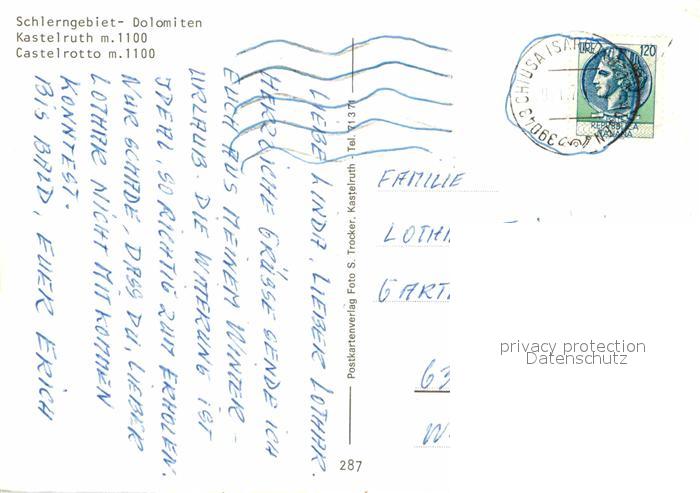 Schlerngebiet- Dolomiten
Kastelruth m.1100
Castelrotto m.1100
LIEBE LINDA, LIEBER LOTHAR.
HERZLICHE GRÜSSE SENDE ICH
EUCH AUS MEINEM WINTER-
URLAUB. DIE WITTERUNG IST
IDEAL, SO RICHTIG ZUM ERHOLEN.
NUR SCHADE, DASS DU, LIEBER
LOTHAR NICHT MITKOMMEN
KONNTEST.
BIS BALD, EUER ERICH
Postkartenverlag Foto S. Trocker, Kastelruth - Tel. 71371
287
39043 CHIUSA
LIRE 120
FAMILIE
LOTH
GART
63
W
privacy protection
Datenschutz